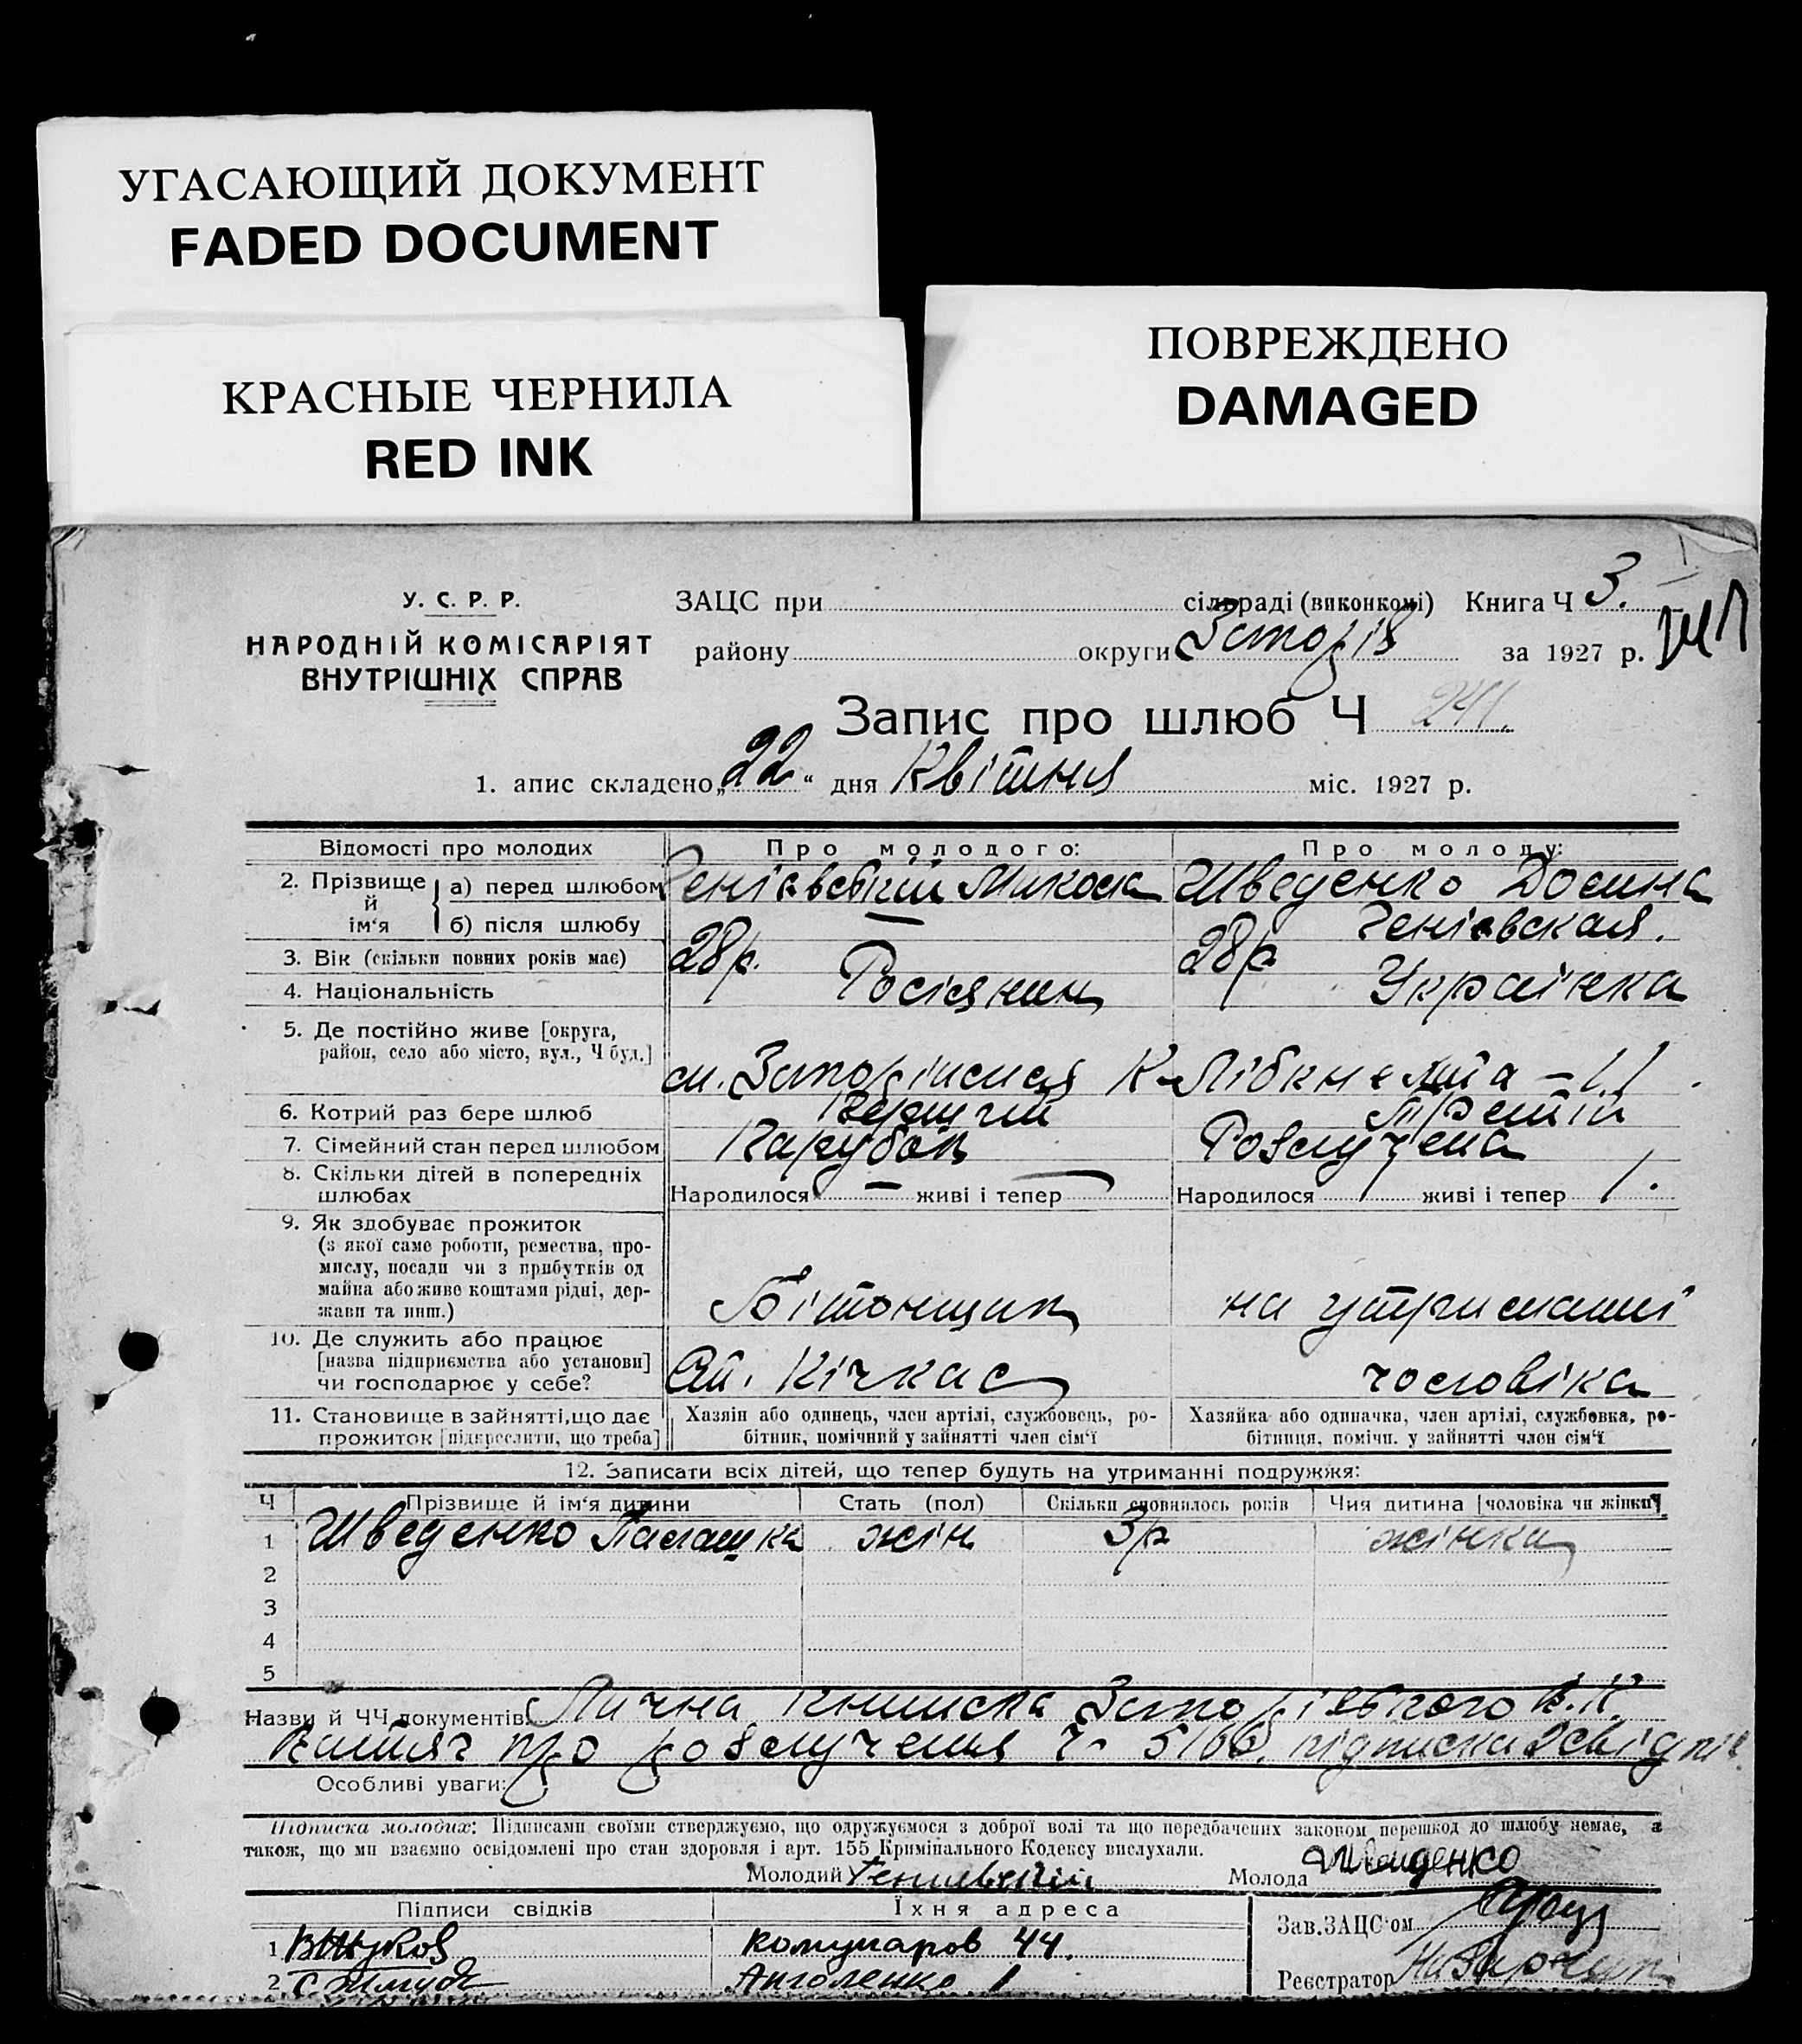 УГАСАЮЩИЙ ДОКУМЕНТ
FADED DOCUMENT
КРАСНЫЕ ЧЕРНИЛА
RED INK
ПОВРЕЖДЕНО
DAMAGED
У. С. Р. Р.
НАРОДНІЙ КОМІСАРІЯТ
ВНУТРІШНІХ СПРАВ
ЗАЦС при сільраді (виконкомі) Книга Ч 3.
району округи за 1927 р.
Запис про шлюб Ч 241.
1. апис складено „22“ дня Квітня міс. 1927 р.
Відомості про молодих Про молодого: Про молоду:
2. Прізвище й ім‘я а) перед шлюбом Микола Шведенко
б) після шлюбу —
3. Вік (скільки повних років має) 28 р. 28 р
4. Національність Росіянин Українка
5. Де постійно живе [округа,
район, село або місто, вул., Ч буд.]
м. К-Лібкнехта – 11.
6. Котрий раз бере шлюб Перший Третій
7. Сімейний стан перед шлюбом Парубок Розлучена
8. Скільки дітей в попередніх
шлюбах Народилося — живі і тепер — Народилося 1 живі і тепер 1.
9. Як здобуває прожиток
(з якої саме роботи, ремества, про-
мислу, посади чи з прибутків од
майна або живе коштами рідні, дер-
жави та инш.) Бітонщик на утриманні
10. Де служить або працює
[назва підприємства або установи]
чи господарює у себе? Кічкас чоловіка
11. Становище в зайнятті, що дає
прожиток [підкреслити, що треба]
Хазяїн або одинець, член артілі, службовець, ро-
бітник, помічний у зайнятті член сім‘ї
Хазяйка або одиначка, член артілі, службовка, ро-
бітниця, помічн. у зайнятті член сім‘ї
12. Записати всіх дітей, що тепер будуть на утриманні подружжя:
Ч Прізвище й ім‘я дитини Стать (пол) Скільки сповнилось років Чия дитина [чоловіка чи жінки]
1 Шведенко Палашка жін 3 р жінки
2
3
4
5
Назви й ЧЧ документів: Лична книжка
Витяг про розлучення Ч. підписка
Особливі уваги:
Підписка молодих: Підписами своїми стверджуємо, що одружуємося з доброї волі та що передбачених законом перешкод до шлюбу немає, а
також, що ми взаємно освідомлені про стан здоровля і арт. 155 Кримінального Кодексу вислухали.
Молодий Молода
Підписи свідків Їхня адреса
Зав. ЗАЦС‘ом
1 Комунаров 44.
2
Реєстратор